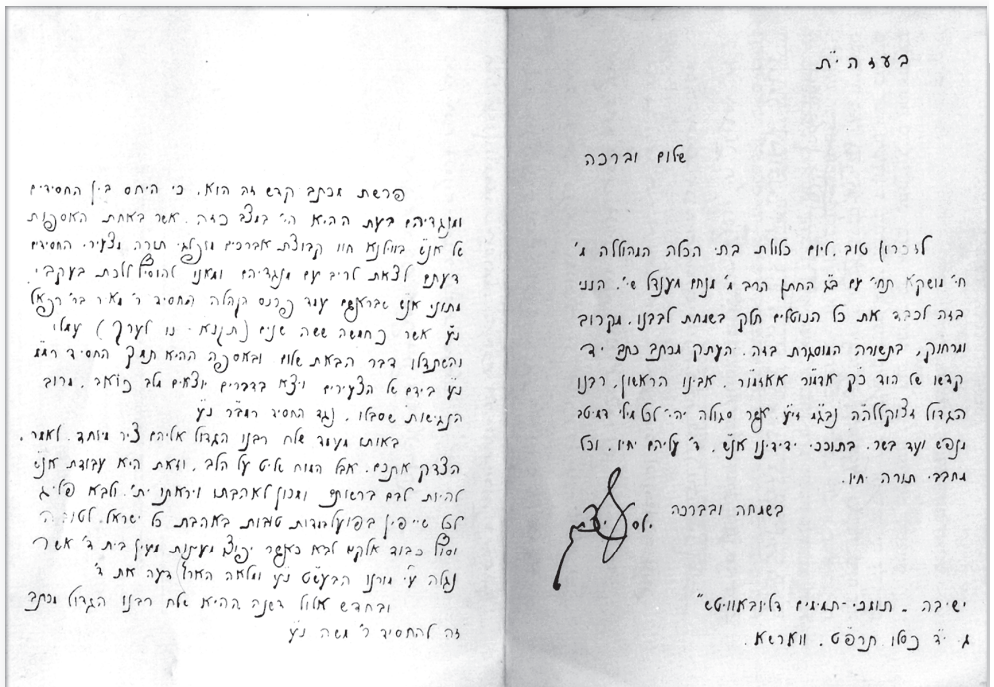 בעזה״ת
שלום וברכה
לזכרון טוב, ליום כלולת בתי הכלה המהוללה מ׳
חי׳ מושקא תחי׳ עם ב״ג החתן הרב מ׳ מנחם מענדל שי׳, הנני
בזה לכבד את כל הנוטלים חלק בשמחת לבבנו, מקרוב
ומרחוק, בתשורה המוסגרת בזה, העתק מכתב כתב יד
קדשו של הוד כ״ק אדמו״ר אאזמו״ר, אבינו הראשון, רבנו
הגדול זצוקללה״ה נבג״מ זי״ע אשר סגולה יהי׳ לכל מילי דמיטב
מנפש ועד בשר, בתוככי ידידינו אנ״ש, ד׳ עליהם יחיו, וכל
מחבבי תורה יחיו.
בשמחה ובברכה
ישיבה - תומכי-תמימים דליובאוויטש״
ג׳ י״ד כסלו תרפ״ט, ווארשא.
פרשת מכתב קדש זה הוא, כי היחס בין החסידים
ומנגדיהם בעת ההיא הי׳ במצב כזה, אשר באחת האספות
של אנ״ש בווילנא חוו קבוצת אברכים מופלגי תורה מצעירי החסידים
דעתם לצאת לריב עם מנגדיהם ומאנו להוסיף ללכת בעקבי
מתוני אנ״ש שבראשם עמד פרנס הקהלה החסיד ר׳ מאיר בר׳ רפאל
נ״ע אשר כחמשה ששה שנים (תקנ״א - נו לערך) עמלו
והשתדלו דבר הבאת שלום ובאספה ההיא תמך החסיד
נ״ע בידם של הצעירים ויצא בדברים יוצאים מלב כואב, מרוב
הנגישות שסבלו, נגד החסיד נ״ע
באותו מעמד שלח רבנו הגדול אליהם ציר מיוחד, לאמר,
הצדק אתכם, אבל המוח שליט על הלב, וזאת היא עבודת אנ״ש
להיות לבם ברשותם ומכוון לאהבתו ויראתו ית׳, ולבא פליג
לכל שייפין בפועל מדות טובות באהבת כל ישראל, לטובה
וסוף כבוד אלקים לבא כאשר יפוצו מעינות מעין בית ד׳ אשר
נגלה ע״י מורנו הבעש״ט נ״ע ומלאה הארץ דעה את ד׳
ובחדש אלול דשנה ההיא שלח רבנו הגדול מכתב
זה להחסיד ר׳ משה נ״ע